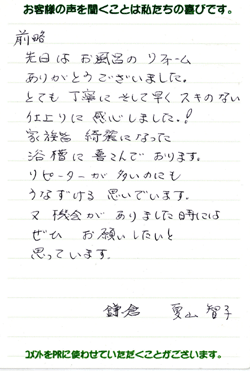 お客様の声を聞くことは私たちの喜びです。
前略
先日は お風呂の リフォーム
ありがとうございました。
とても 丁寧に そして早く スキのない
仕上りに 感心しました。!
家族皆 綺麗になった
浴槽に 喜こんで おります。
リピーターが 多いのにも
うなずける 思いでいます。
又 機会が ありました時には
ぜひ お願いしたいと
思っています。
鎌倉 夏山 智子
コメントをPRに使わせていただくことがございます。